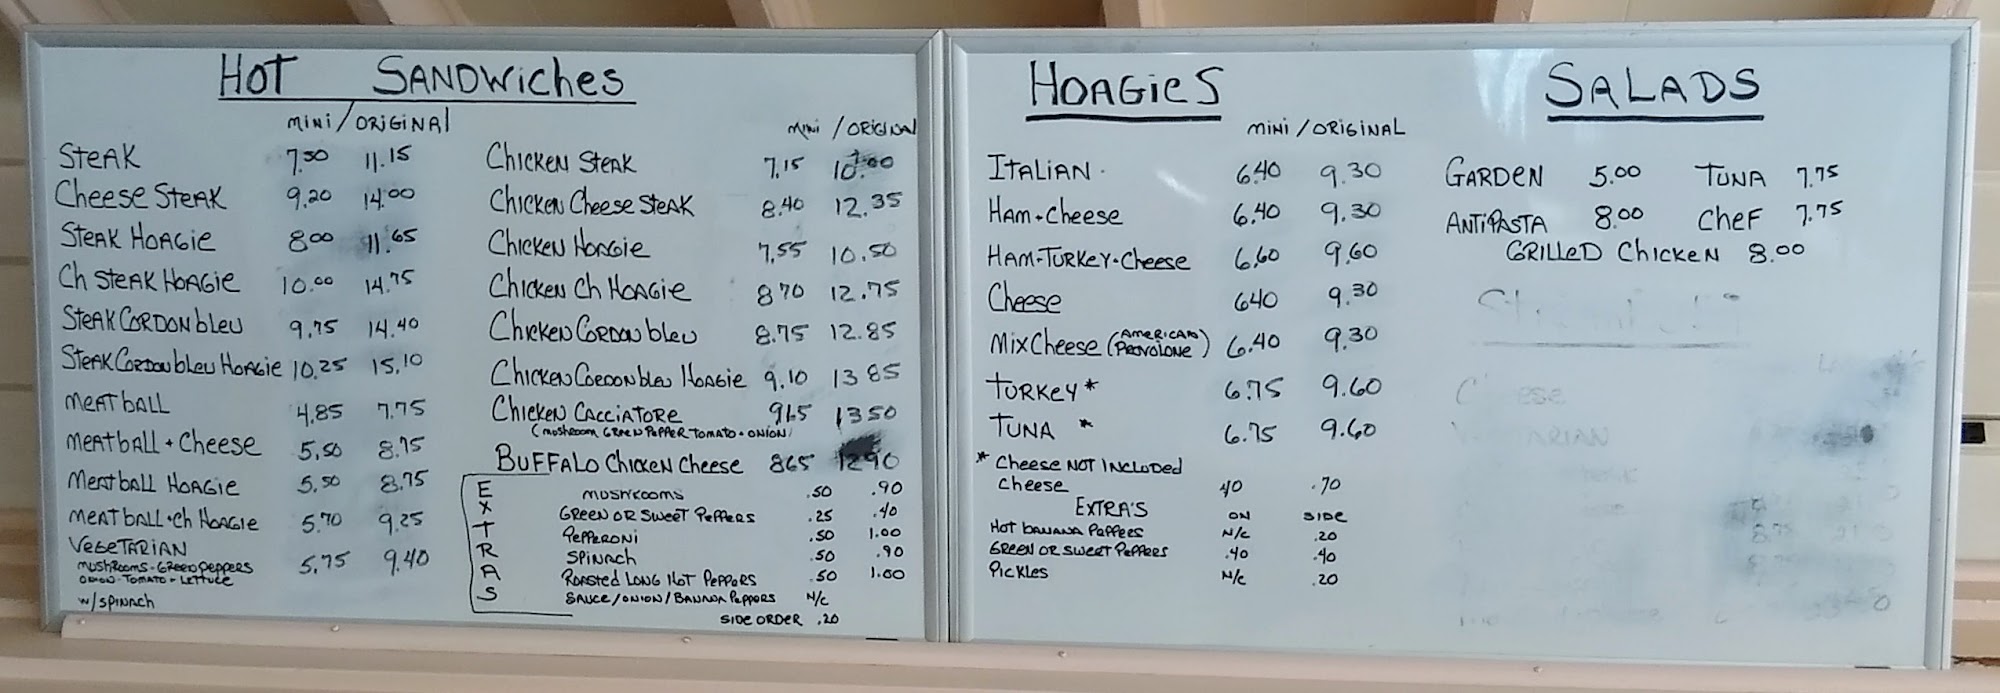 HOT SANDWICHES
MINI / ORIGINAL
STEAK 7.50 11.15
CHEESE STEAK 9.20 14.00
STEAK HOAGIE 8.00 11.65
CH STEAK HOAGIE 10.00 14.75
STEAK CORDON bLEU 9.75 14.40
STEAK CORDON bLEU HOAGIE 10.25 15.10
MEATbALL 4.85 7.75
MEATbALL + CHEESE 5.50 8.75
MEATbALL HOAGIE 5.50 8.75
MEATbALL + CH HOAGIE 5.70 9.25
VEGETARIAN 5.75 9.40
MUSHROOMS - GREEN PEPPERS
ONION - TOMATO - LETTUCE
W/SPINACH
MINI / ORIGINAL
CHICKEN STEAK 7.15
CHICKEN CHEESE STEAK 8.40 12.35
CHICKEN HOAGIE 7.55 10.50
CHICKEN CH HOAGIE 8.70 12.75
CHICKEN CORDON bLEU 8.75 12.85
CHICKEN CORDON bLEU HOAGIE 9.10 13 85
CHICKEN CACCIATORE 965 1350
(MUSHROOM GREEN PEPPER TOMATO + ONION)
BUFFALO CHICKEN CHEESE 865 1290
EXTRAS
MUSHROOMS .50 .90
GREEN OR SWEET PEPPERS .25 .40
PEPPERONI .50 1.00
SPINACH .50 .90
ROASTED LONG HOT PEPPERS .50 1.00
SAUCE/ONION/BANANA PEPPERS N/C
SIDE ORDER .20
HOAGIES
MINI / ORIGINAL
ITALIAN 6.40 9.30
HAM + CHEESE 6.40 9.30
HAM-TURKEY-CHEESE 6.60 9.60
CHEESE 640 9.30
MIX CHEESE (AMERICAN PROVOLONE) 6.40 9.30
TURKEY * 6.75 9.60
TUNA * 6.75 9.60
* CHEESE NOT INCLUDED
CHEESE .40 .70
EXTRA'S ON SIDE
HOT bANANA PEPPERS N/C .20
GREEN OR SWEET PEPPERS .40 .40
PICKLES N/C .20
SALADS
GARDEN 5.00 TUNA 7.75
ANTIPASTA 8.00 CHEF 7.75
GRILLED CHICKEN 8.00